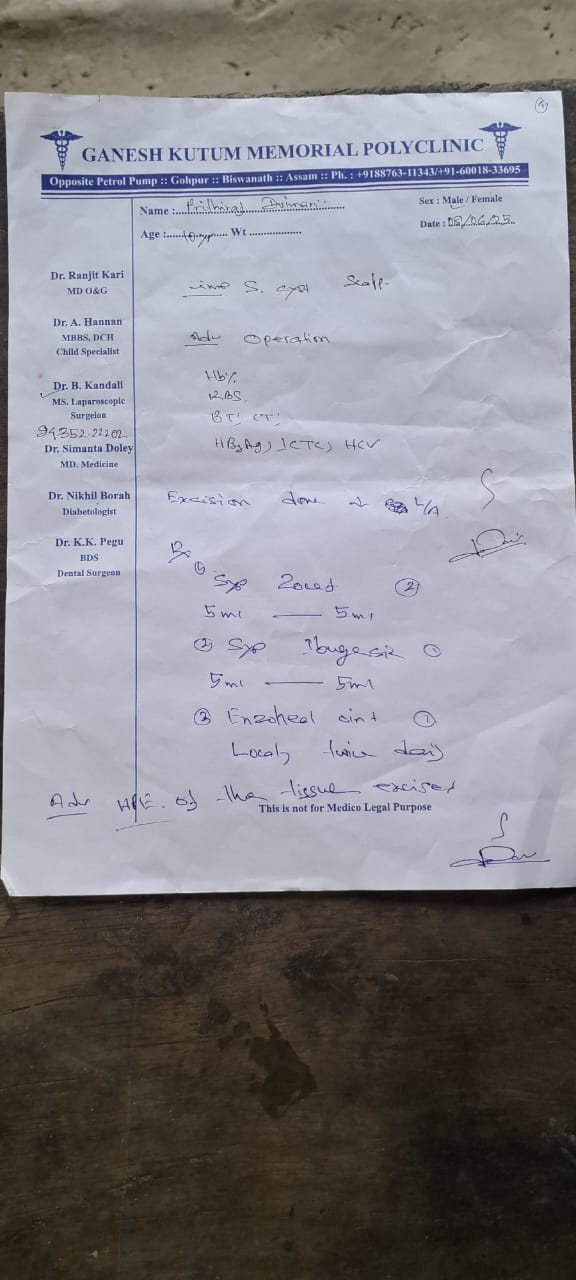 GANESH KUTUM MEMORIAL POLYCLINIC
Opposite Petrol Pump :: Gohpur :: Biswanath :: Assam :: Ph. : +9188763-11343/+91-60018-33695
Name : Prithiraj
Sex : Male / Female
Age : 10 yr Wt
Date : 08/06/25
Dr. Ranjit Kari
MD O&G
imp S. cyst Scalp.
Dr. A. Hannan
MBBS, DCH
Child Specialist
Adv Operation
Dr. B. Kandali
MS. Laparoscopic
Surgeion
94352-22202
Hb%
RBS,
BT, CT,
HBsAg, ICTC, HCV
Dr. Simanta Doley
MD. Medicine
Dr. Nikhil Borah
Diabetologist
Excision done L/A
Dr. K.K. Pegu
BDS
Dental Surgeon
Rx
① Syp Zoced ②
5ml — 5ml
② Syp Ibugesic ①
5ml — 5ml
③ Enzoheal oint ①
Locally twice daily
Adv HPE. of the tissue excised
This is not for Medico Legal Purpose